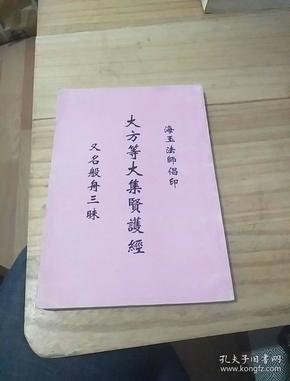 海玉法師倡印
大方等大集賢護經
又名般舟三昧
孔夫子旧书网